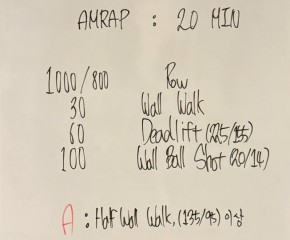 AMRAP : 20 MIN
1000/800 Row
30 Wall Walk
60 Deadlift (225/155)
100 Wall Ball Shot (20/14)
A : Half Wall Walk, (135/95) 이상